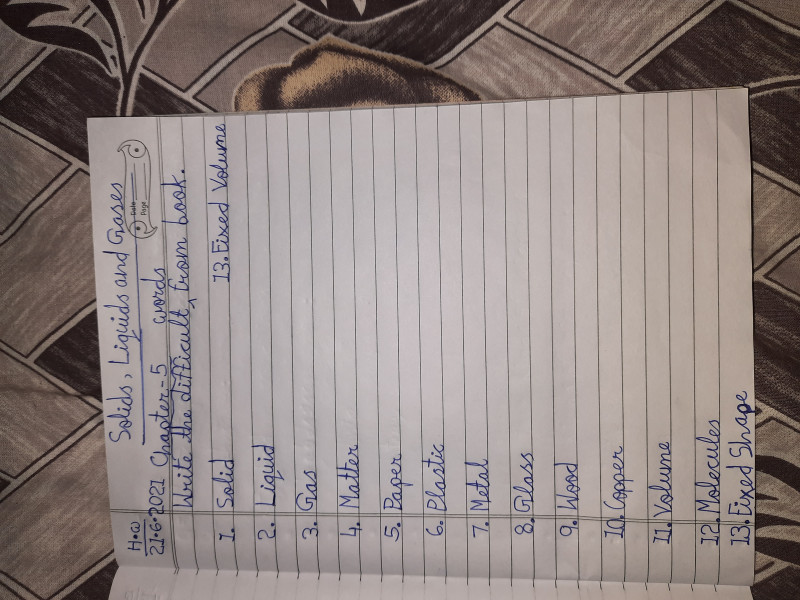 Solids, Liquids and Gases
H.W
Date
Page
21.6.2021 Chapter-5
words
Write the difficult ^ from book.
1. Solid
13. Fixed Volume
2. Liquid
3. Gas
4. Matter
5. Paper
6. Plastic
7. Metal
8. Glass
9. Wood
10. Copper
11. Volume
12. Molecules
13. Fixed Shape